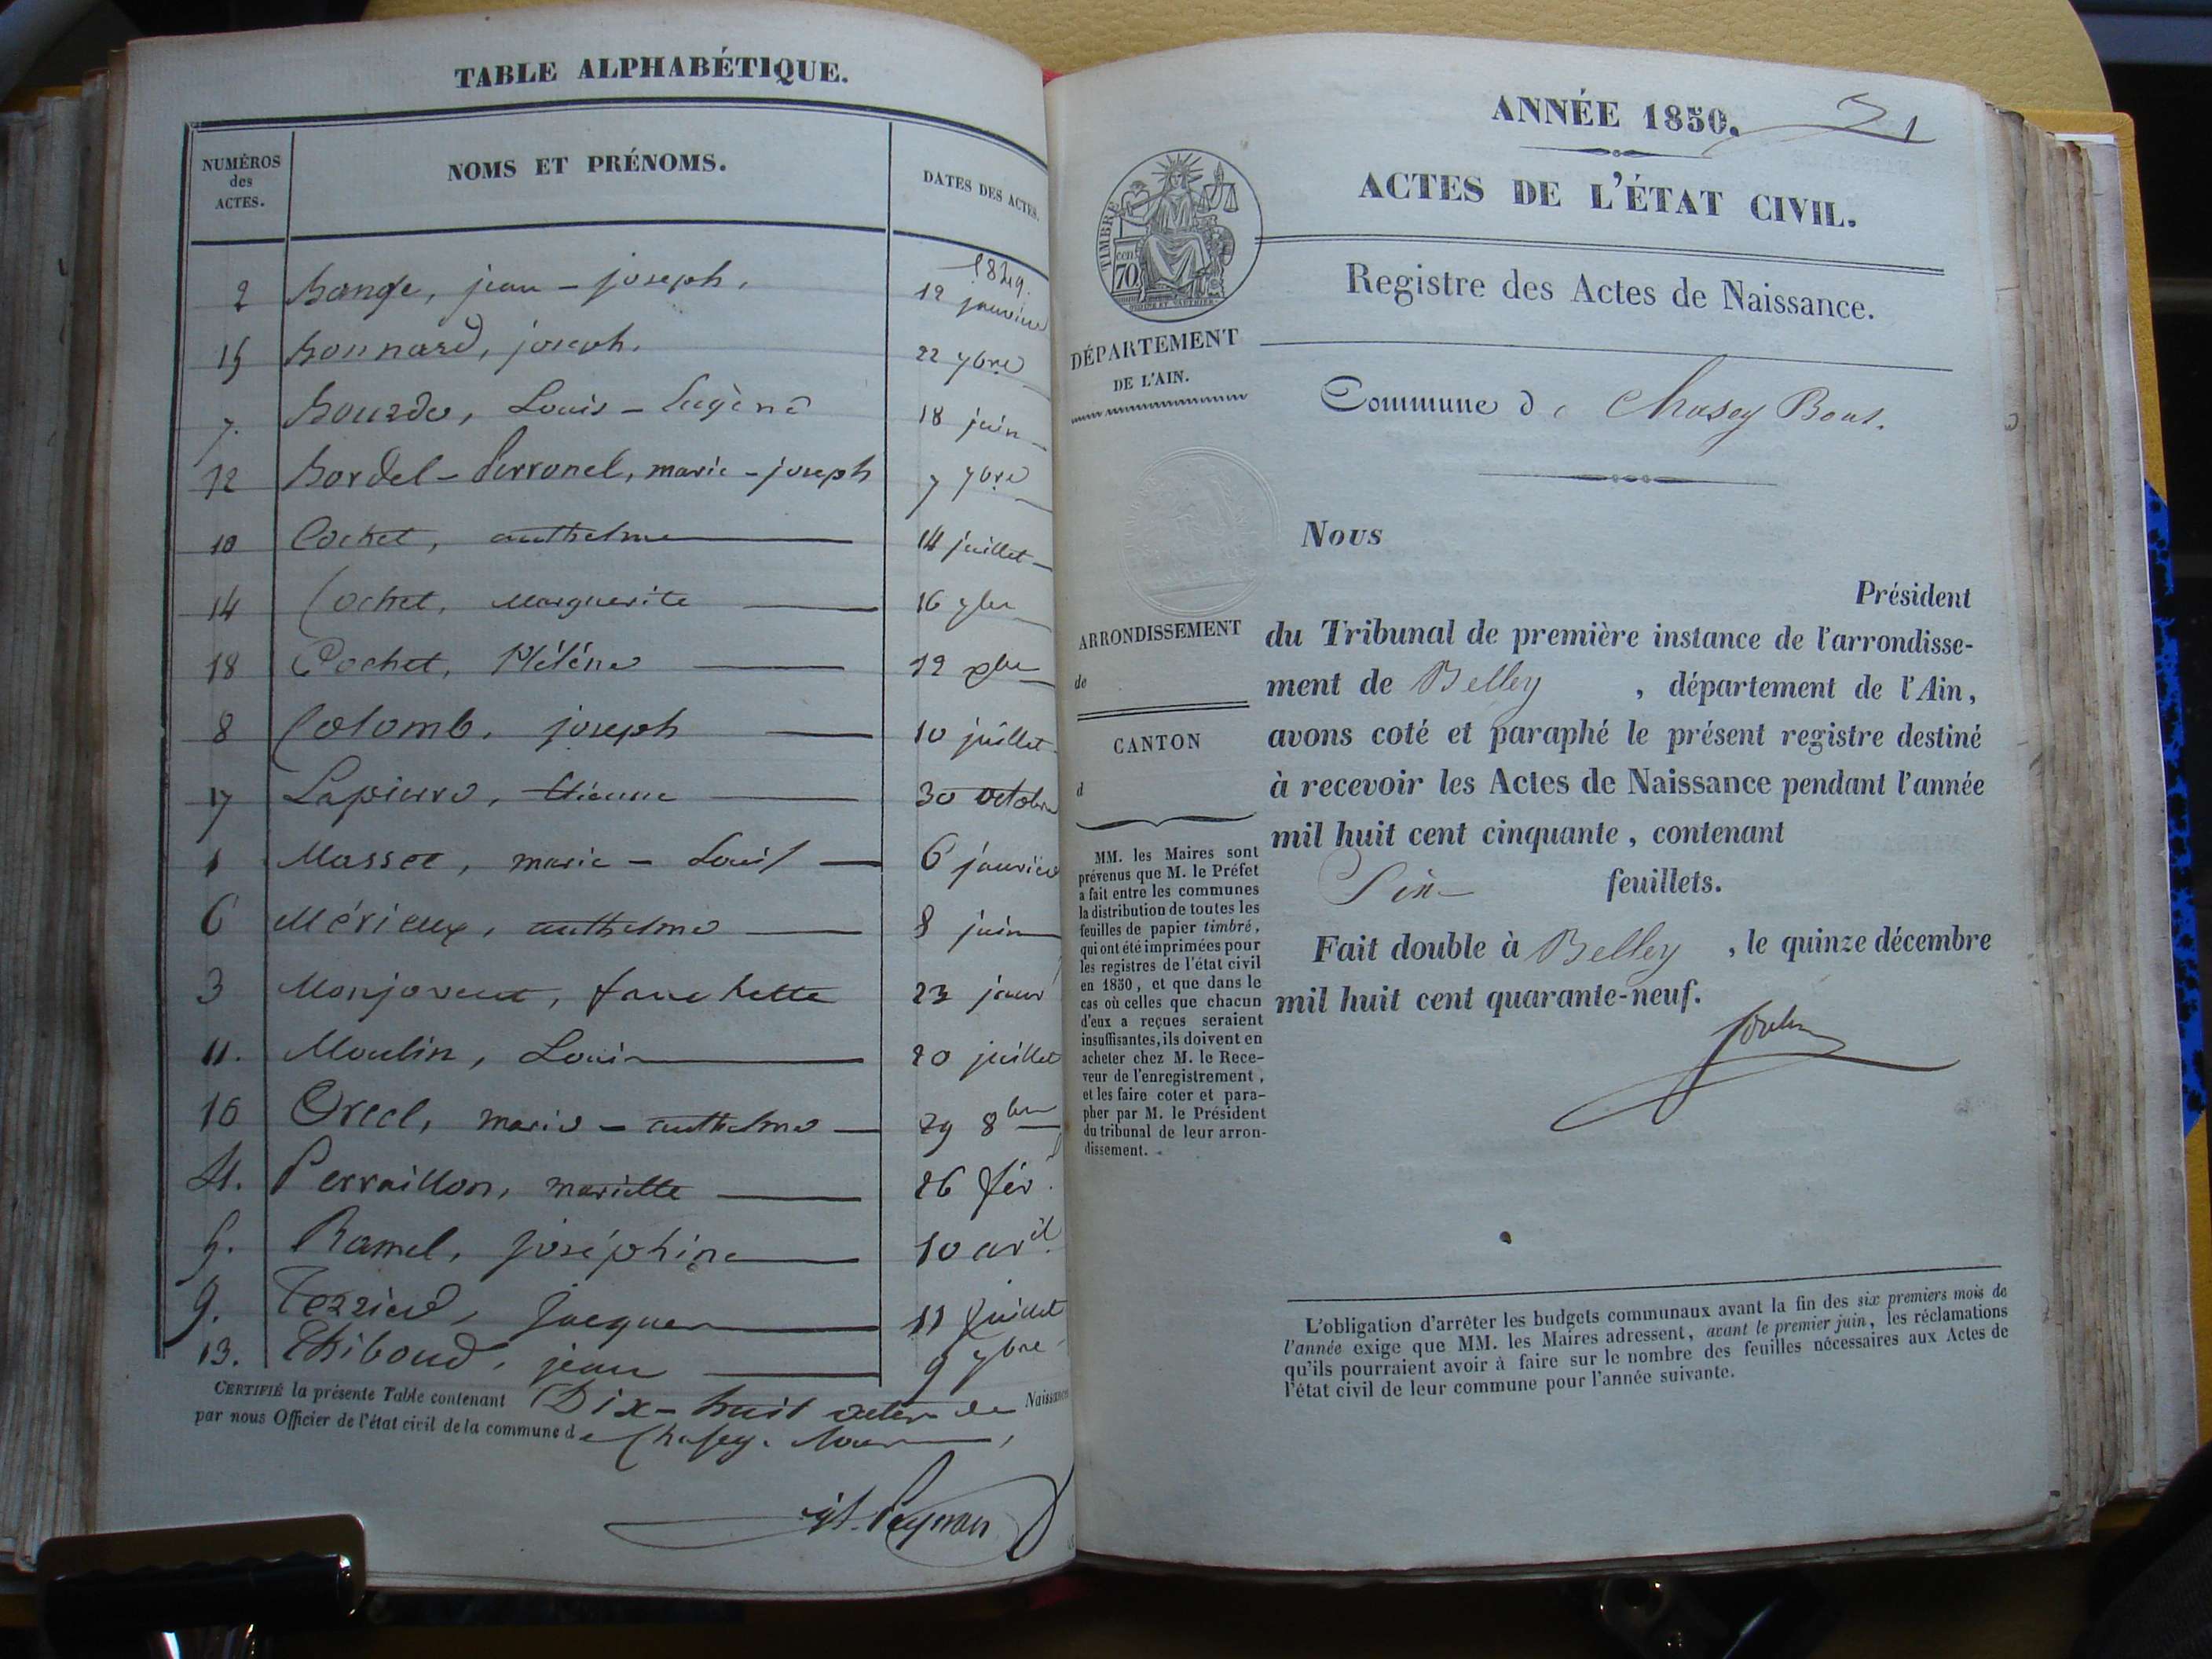 TABLE ALPHABÉTIQUE.
NUMÉROS des ACTES. NOMS ET PRÉNOMS. DATES DES ACTES.
1849.
2 Bange, jean - joseph, 12 janvier
15 Bonnard, joseph. 22 7bre
7. Bourde, Louis - Eugène 18 juin
12 Bordel - Perronel, marie - joseph 7 7bre
10 Cochet, anthelme 14 juillet
14 Cochet, Marguerite 16 7bre
18 Cochet, Hélène 12 xbre
8 Colomb, joseph 10 juillet
17 Lapierre, Etienne 30 octobre
1 Masset, marie - Louis 6 janvier
6 Mérieux, anthelme 8 juin
3 Monjovent, fanchette 23 janvr
11. Moulin, Louis 20 juillet
16 Orcel, marie - anthelme 29 8bre
4. Perraillon, mariette 26 fév.
5. Ramel, joséphine 10 avril
9. Terrier, Jacques 11 Juillet
13. Thiboud, jean 9 7bre
CERTIFIÉ la présente Table contenant Dix-huit actes de Naissance
par nous Officier de l'état civil de la commune de Chasey-Bons,
ANNÉE 1850. 21
ACTES DE L'ÉTAT CIVIL.
Registre des Actes de Naissance.
TIMBRE
70 cen.
DÉPARTEMENT
DE L'AIN.
Commune de Chasey Bons.
Nous
Président
du Tribunal de première instance de l'arrondisse-
ment de Belley , département de l'Ain,
avons coté et paraphé le présent registre destiné
à recevoir les Actes de Naissance pendant l'année
mil huit cent cinquante , contenant
Six feuillets.
Fait double à Belley , le quinze décembre
mil huit cent quarante-neuf.
ARRONDISSEMENT
de
CANTON
d
MM. les Maires sont
prévenus que M. le Préfet
a fait entre les communes
la distribution de toutes les
feuilles de papier timbré,
qui ont été imprimées pour
les registres de l'état civil
en 1850, et que dans le
cas où celles que chacun
d'eux a reçues seraient
insuffisantes, ils doivent en
acheter chez M. le Rece-
veur de l'enregistrement,
et les faire coter et para-
pher par M. le Président
du tribunal de leur arron-
dissement.
L'obligation d'arrêter les budgets communaux avant la fin des six premiers mois de
l'année exige que MM. les Maires adressent, avant le premier juin, les réclamations
qu'ils pourraient avoir à faire sur le nombre des feuilles nécessaires aux Actes de
l'état civil de leur commune pour l'année suivante.